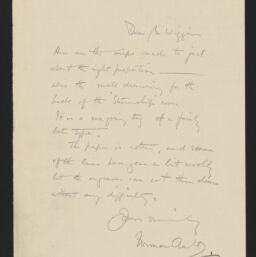 Dear Mr Wiggin
Here are the maps made to just
about the right proportion
also the small drawing for the
back of the Steamship cover
It is a majority of a fairly
late type.
The paper is rotten, and some
of the lines have gone a bit woolly
but the engraver can cut them down
without any difficulty.
Yours sincerely
Norman